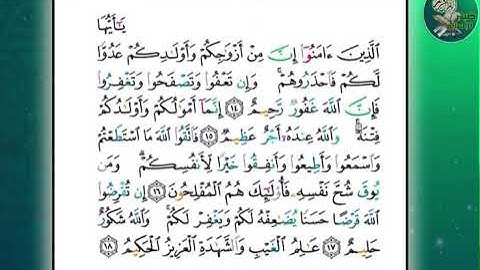 يَٰٓأَيُّهَا
ٱلَّذِينَ ءَامَنُوٓا۟ إِنَّ مِنْ أَزْوَٰجِكُمْ وَأَوْلَٰدِكُمْ عَدُوًّا
لَّكُمْ فَٱحْذَرُوهُمْ ۚ وَإِن تَعْفُوا۟ وَتَصْفَحُوا۟ وَتَغْفِرُوا۟
فَإِنَّ ٱللَّهَ غَفُورٌ رَّحِيمٌ ١٤ إِنَّمَآ أَمْوَٰلُكُمْ وَأَوْلَٰدُكُمْ
فِتْنَةٌ ۚ وَٱللَّهُ عِندَهُۥٓ أَجْرٌ عَظِيمٌ ١٥ فَٱتَّقُوا۟ ٱللَّهَ مَا ٱسْتَطَعْتُمْ
وَٱسْمَعُوا۟ وَأَطِيعُوا۟ وَأَنفِقُوا۟ خَيْرًا لِّأَنفُسِكُمْ ۗ وَمَن
يُوقَ شُحَّ نَفْسِهِۦ فَأُو۟لَٰٓئِكَ هُمُ ٱلْمُفْلِحُونَ ١٦ إِن تُقْرِضُوا۟
ٱللَّهَ قَرْضًا حَسَنًا يُضَٰعِفْهُ لَكُمْ وَيَغْفِرْ لَكُمْ ۚ وَٱللَّهُ شَكُورٌ
حَلِيمٌ ١٧ عَٰلِمُ ٱلْغَيْبِ وَٱلشَّهَٰدَةِ ٱلْعَزِيزُ ٱلْحَكِيمُ ١٨